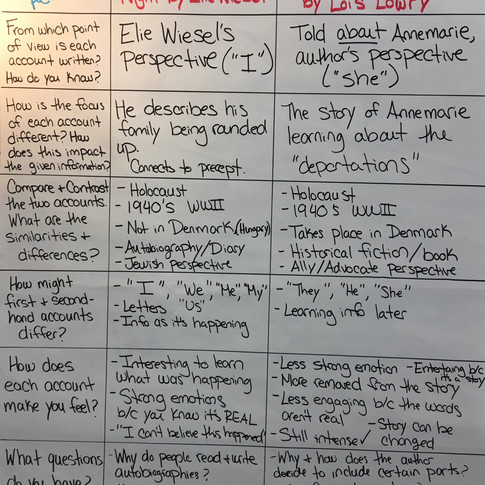 Night by Elie Wiesel
by Lois Lowry
From which point
of view is each
account written?
How do you know?
Elie Wiesel's
Perspective ("I")
Told about Annemarie,
author's perspective
("she")
How is the focus
of each account
different? How
does this impact
the given information?
He describes his
family being rounded
up.
Connects to precept.
The story of Annemarie
learning about the
"deportations"
Compare + Contrast
the two accounts.
What are the
similarities +
differences?
- Holocaust
- 1940's WWII
- Not in Denmark (Hungary)
- Autobiography/Diary
- Jewish Perspective
- Holocaust
- 1940's WWII
- Takes place in Denmark
- Historical fiction/book
- Ally/Advocate Perspective
How might
first + second-
hand accounts
differ?
- "I", "We", "Me", "My"
- Letters "Us"
- Info as its happening
- "They", "He", "She"
- Learning info later
How does
each account
make you feel?
- Interesting to learn
what was happening
- Strong emotions
b/c you know it's REAL
- "I can't believe this happened"
- Less strong emotion - Entertaining b/c
it's a story
- More removed from the story
- Less engaging b/c the words
aren't real - Story can be
changed
- Still intense ✓
What questions
do you have?
- Why do people read + write
autobiographies?
- Why + how does the author
decide to include certain parts?